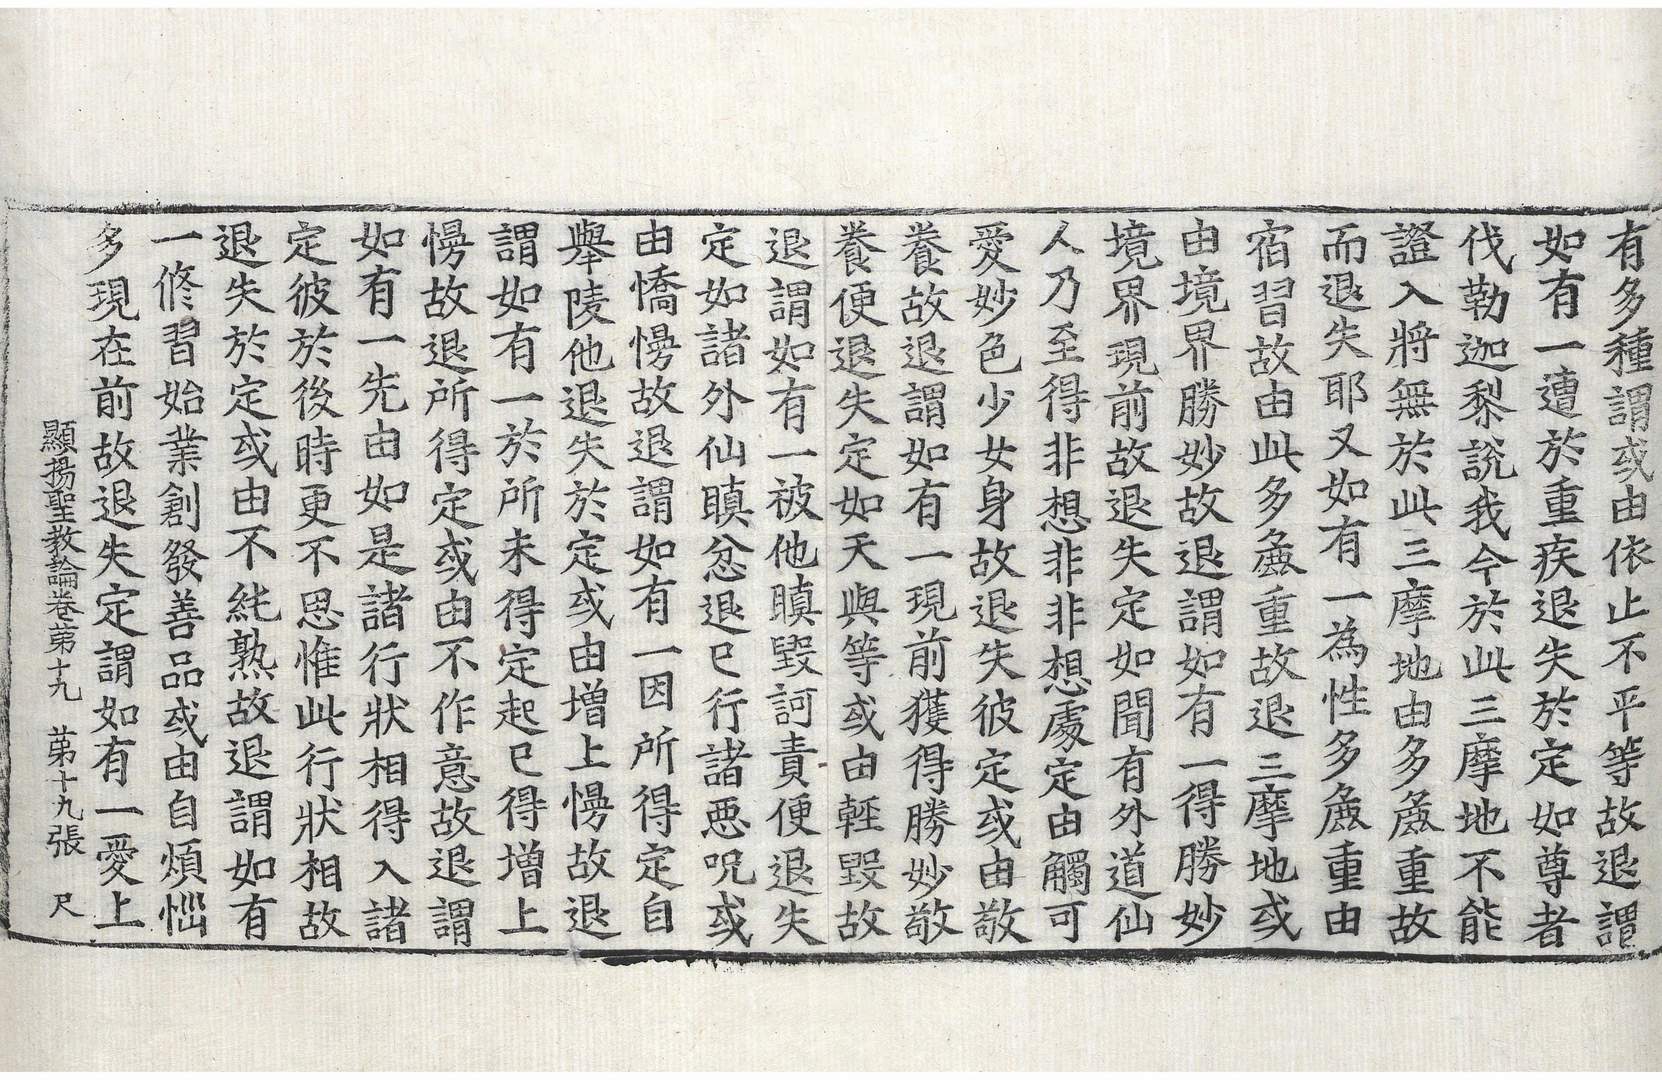 有多種謂或由依止不平等故退謂
如有一遭於重疾退失於定如尊者
伐勒迦黎說我今於此三摩地不能
證入將無於此三摩地由多麁重故
而退失耶又如有一為性多麁重由
宿習故由此多麁重故退三摩地或
由境界勝妙故退謂如有一得勝妙
境界現前故退失定如聞有外道仙
人乃至得非想非非想處定由觸可
愛妙色少女身故退失彼定或由敬
養故退謂如有一現前獲得勝妙敬
養便退失定如天與等或由輕毀故
退謂如有一被他瞋毀訶責便退失
定如諸外仙瞋忿退已行諸惡呪或
由憍慢故退謂如有一因所得定自
舉陵他退失於定或由增上慢故退
謂如有一於所未得定起已得增上
慢故退所得定或由不作意故退謂
如有一先由如是諸行狀相得入諸
定彼於後時更不思惟此行狀相故
退失於定或由不純熟故退謂如有
一修習始業創發善品或由自煩惱
多現在前故退失定謂如有一愛上
顯揚聖教論卷第十九　第十九張　尺